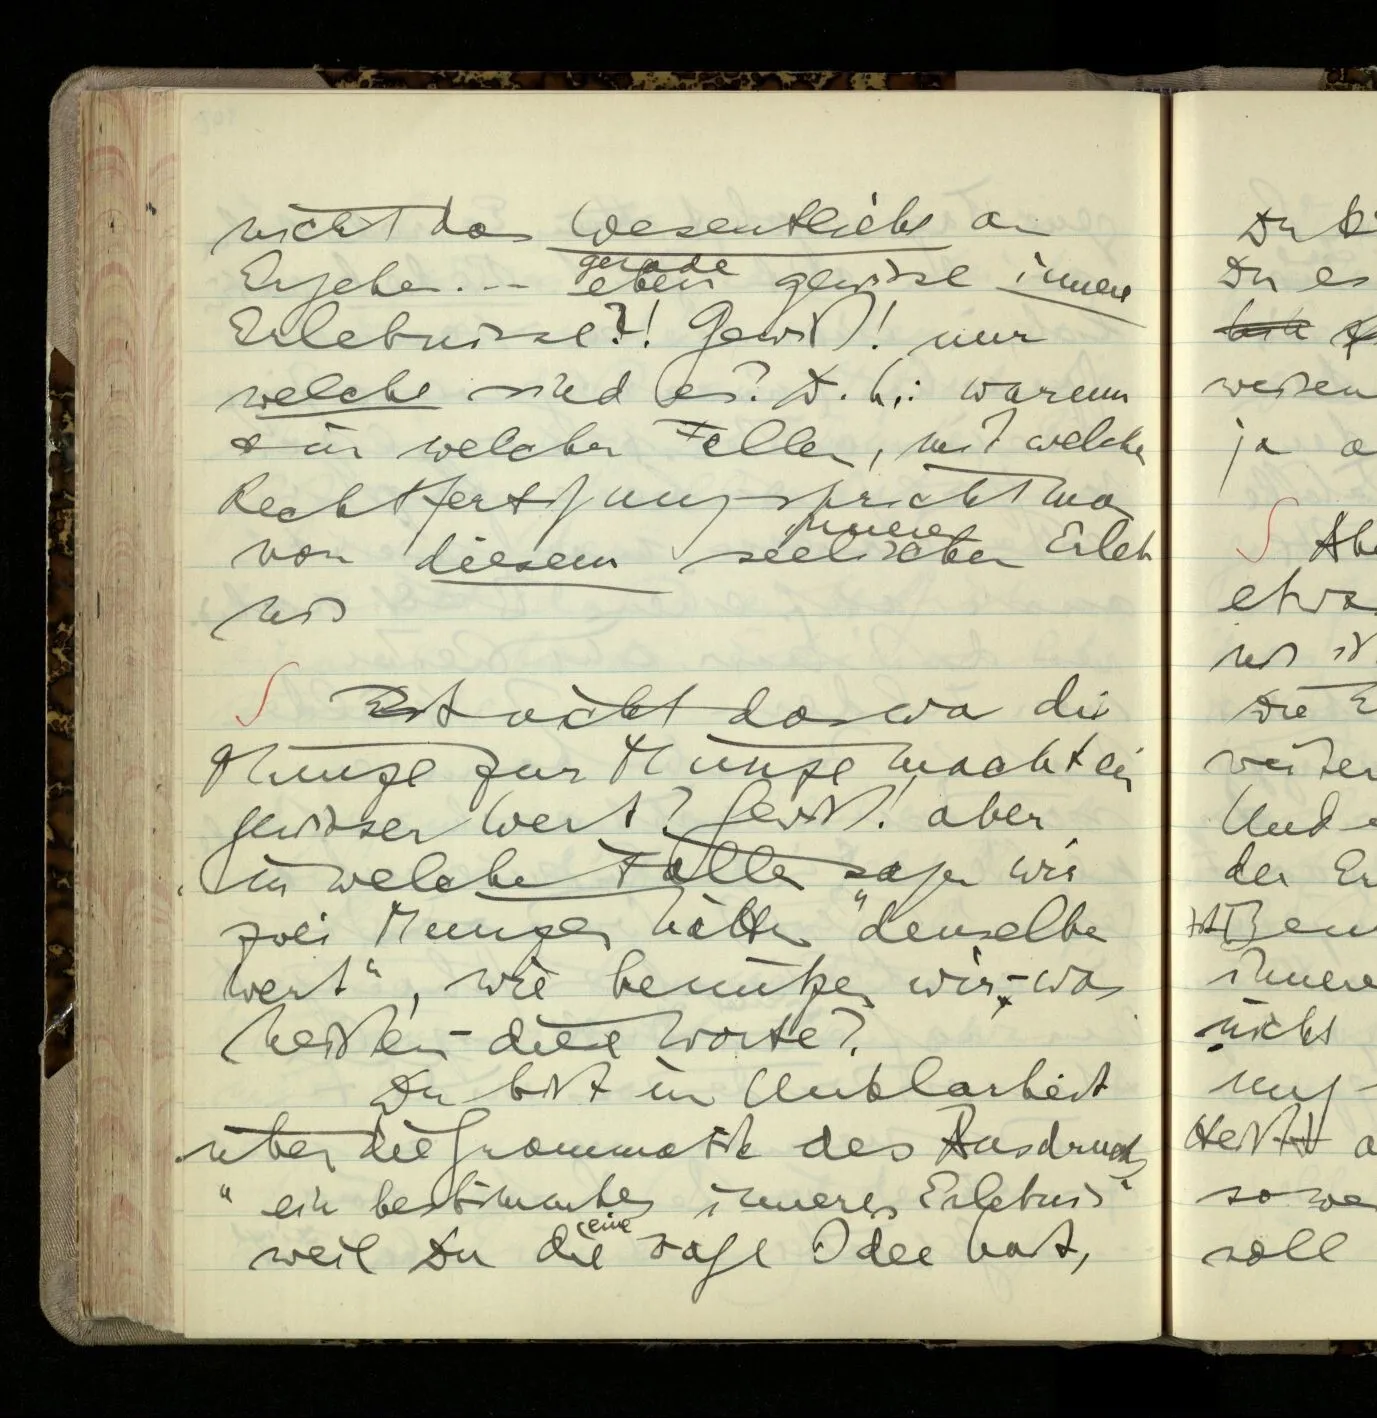 nicht das Wesentliche am
Ergeben... eben gerade gewisse innere
Erlebnisse?! Gewiß! nur
welche sind es? D.h.: warum
& in welchen Fällen, mit welcher
Rechtfertigung spricht man
von diesem seelischen inneren Erleb
nis
∫ Ist nicht das was die
Münze zur Münze macht ein
gewisser Wert? Gewiß! aber
in welchen Fällen sagen wir
zwei Münzen hätten "denselben
Wert", wie benützen wir, – was
heißen – diese Worte?
Du bist in Unklarheit
über die Grammatik des Ausdrucks
"ein bestimmtes inneres Erlebnis"
weil Du die eine vage Idee hast,
Du
Du es
weisen
ja
∫ Abe
etwa
nis ist
Die E
weiter
Und
der Er
innere
nicht
ung
Heißt
so we
soll